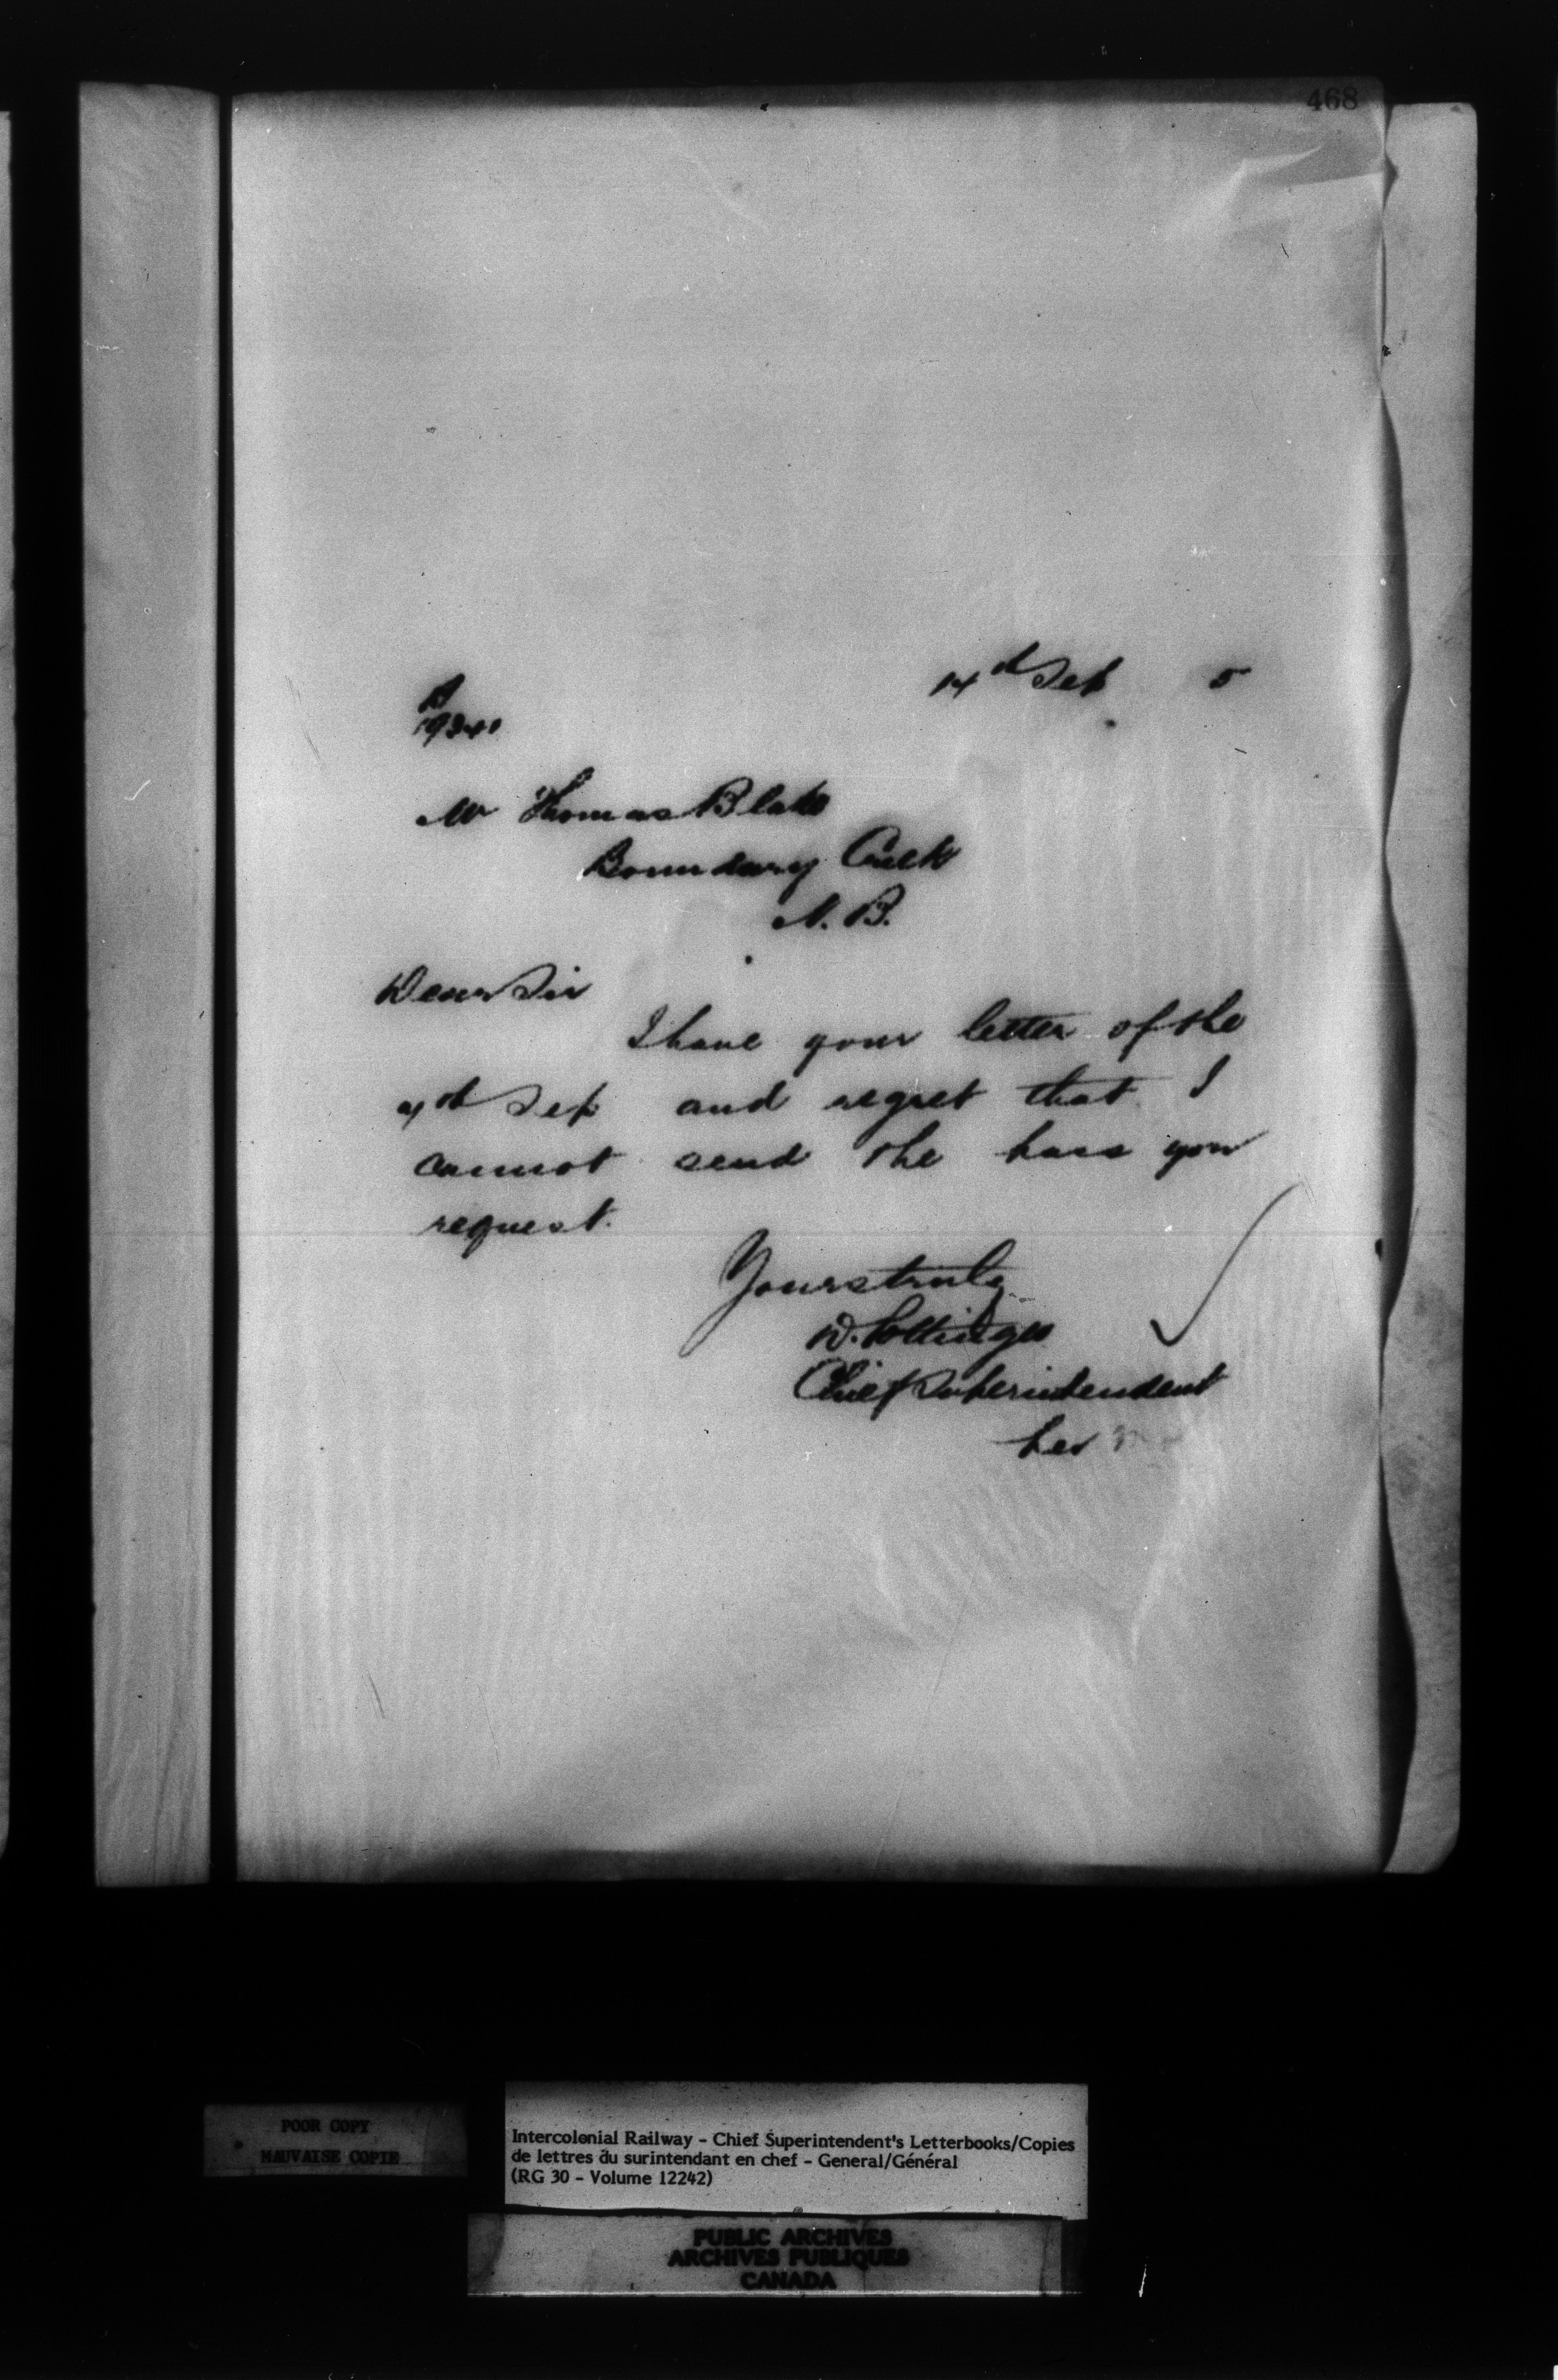 468
14th Sep 5
A
19341
Mr Thomas Blake
Boundary Creek
N. B.
Dear Sir
I have your letter of the
9th Sep and regret that I
cannot send the pass you
request.
Yours truly
D. Pottinger
Chief Superintendent
per
POOR COPY
MAUVAISE COPIE
Intercolonial Railway - Chief Superintendent's Letterbooks/Copies
de lettres du surintendant en chef - General/Général
(RG 30 - Volume 12242)
PUBLIC ARCHIVES
ARCHIVES PUBLIQUES
CANADA